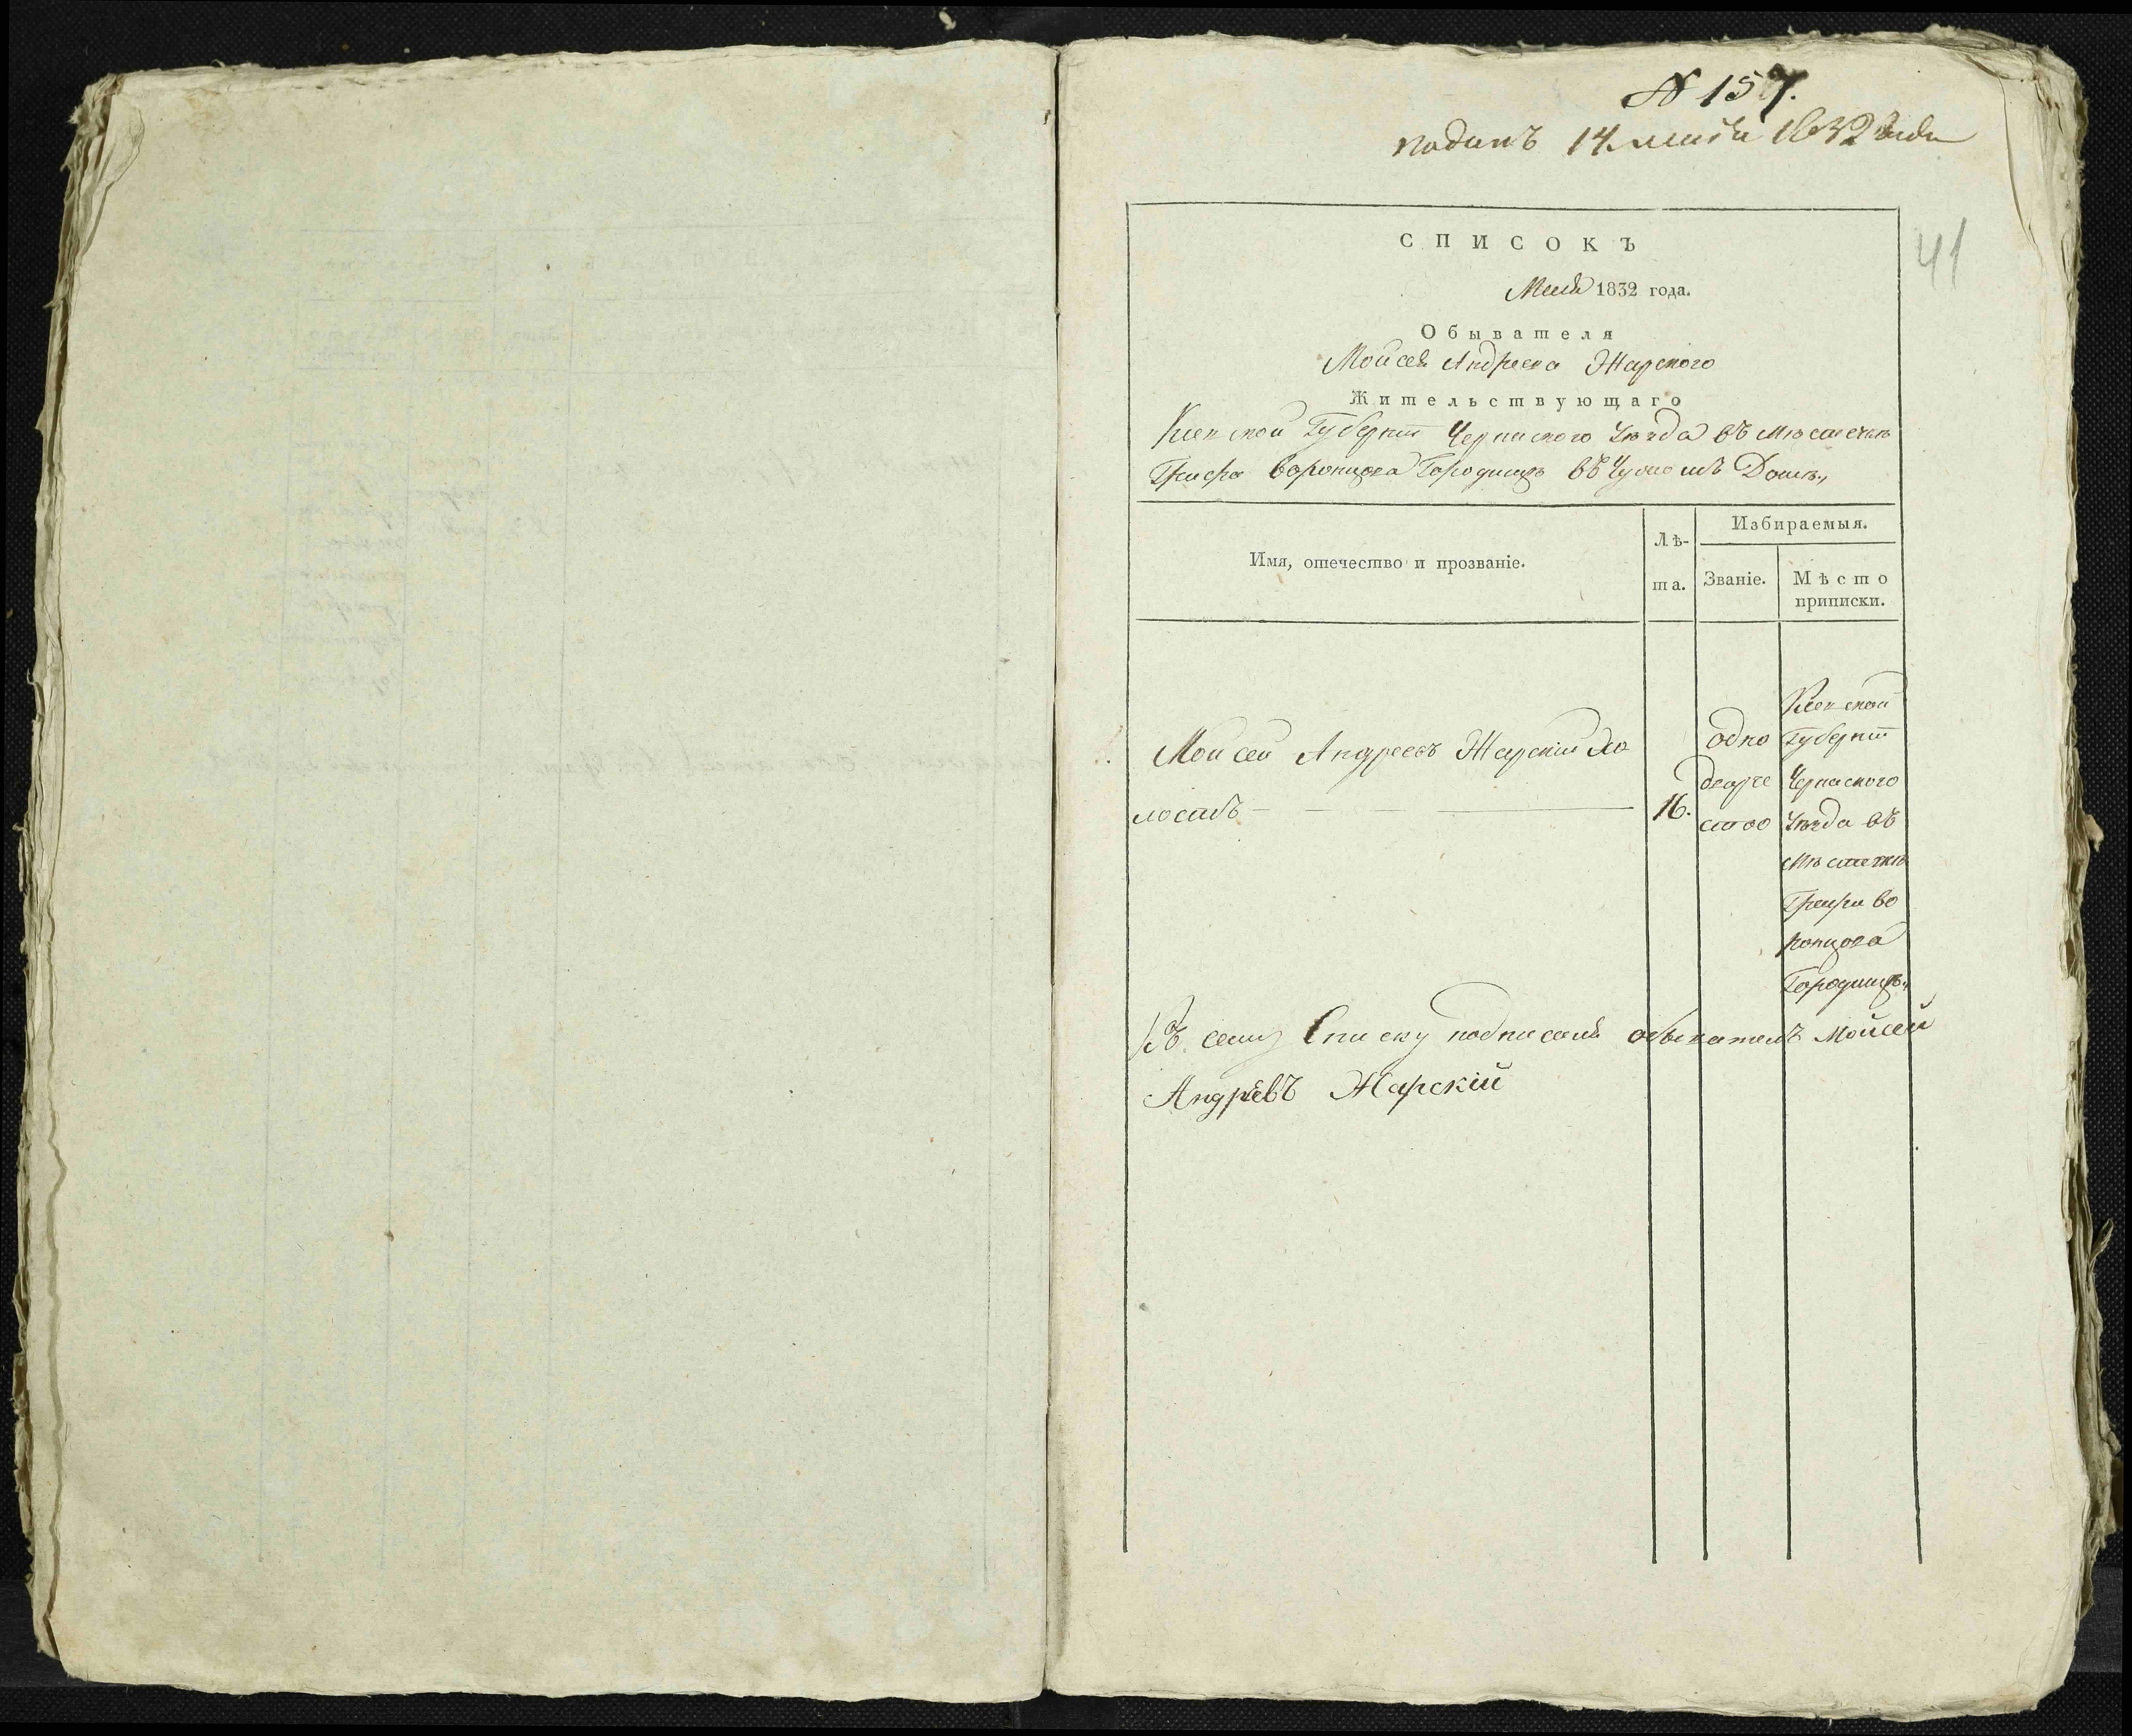 N 157.
поданъ 14 маія 1832 года
41
СПИСОКЪ
Маія 1832 года.
Обывателя
Мойсея Андреева Жарского
Жительствующаго
Киевской Губерніи Черкаского Уезда въ Местечке
Графа Воронцова Городище въ Чужомъ Доме,
Имя, отечество и прозваніе.
Лѣ-
та.
Избираемыя.
Званіе.
Мѣсто
приписки.
Мойсей Андреевъ Жарский Хо
лостъ
16.
одно
дворче
ство
Киевской
Губерніи
Черкаского
Уезда въ
Местечке
Графа Во
ронцова
Городище,
Къ сему Списку подписался обыватель Мойсей
Андрѣевъ Жарскій